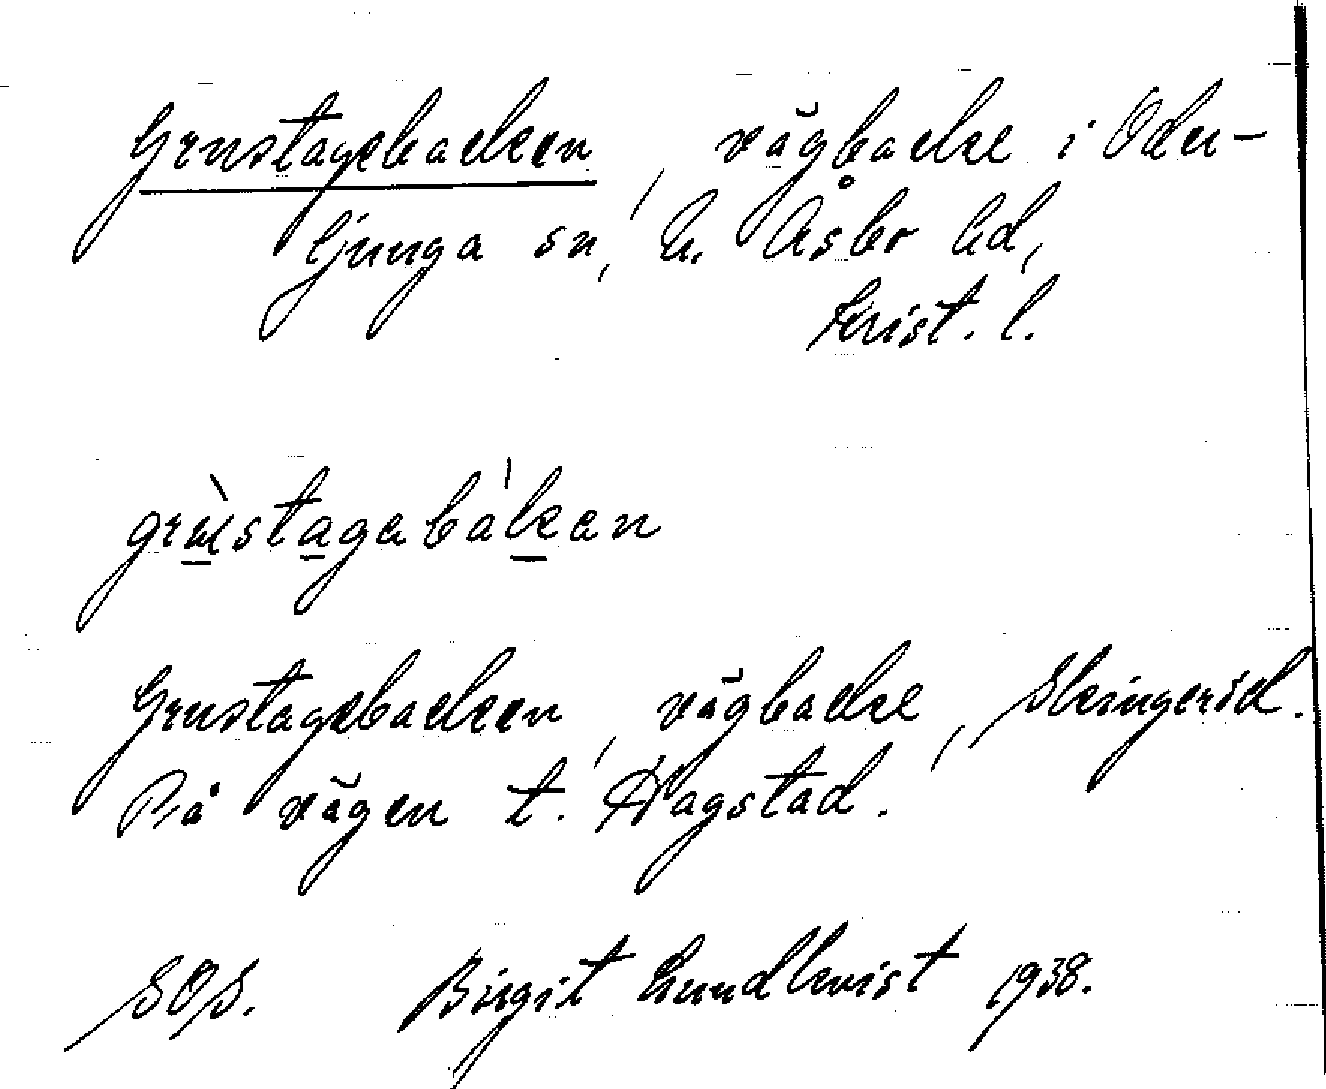 Grustagebacken, vägbacke i Oder-
ljunga sn, N. Åsbo hd,
Krist. l.
grùstagabàkan
Grustagebacken, vägbacke, Skingeröd.
På vägen t. Hagstad.
SOS. Birgit Lundkvist 1938.